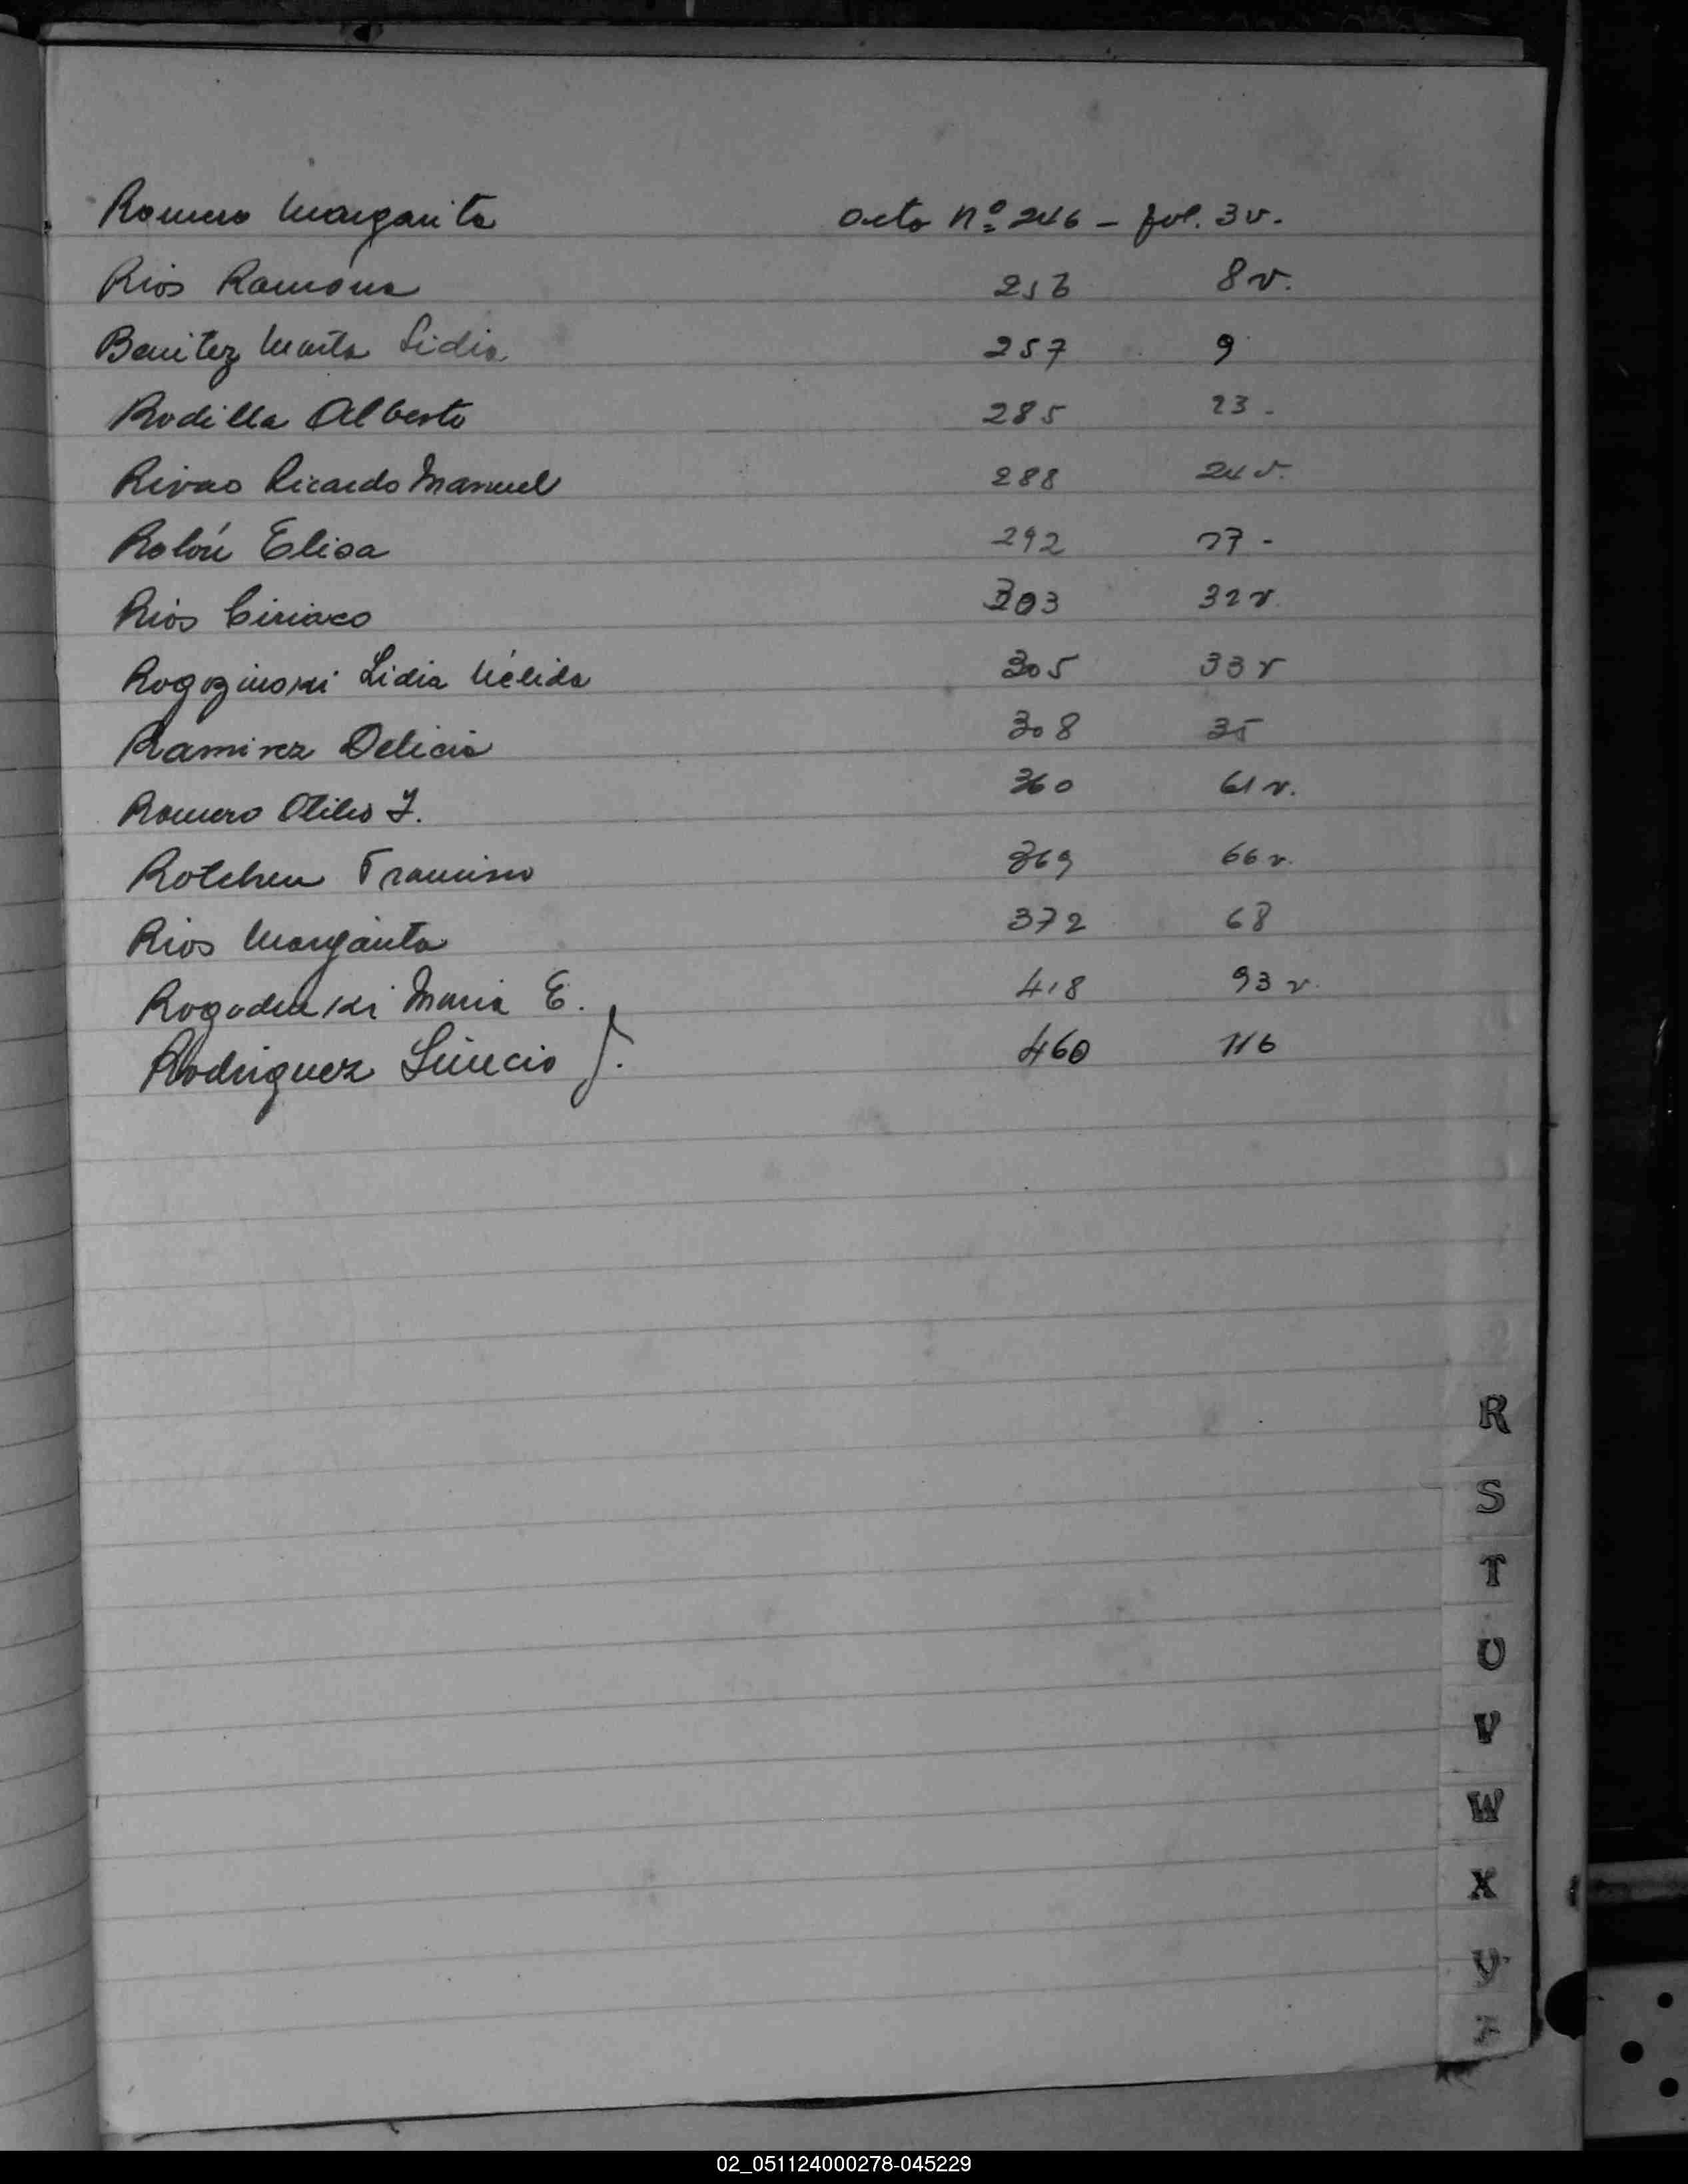 Romero Margarita acta nº 246 - fol. 3v.
Rios Ramona 256 8v.
Benitez Marta Lidia 257 9
Rodilla Alberto 285 23.
Rivas Ricardo Manuel 288 24v.
Rolón Elisa 292 27-
Rios Ciriaco 303 32v.
Rogozinski Lidia Nélida 305 33v
Ramirez Delicia 308 35
Romero Otilio J. 360 61v.
Francisco 369 66v.
Rios Margarita 372 68
Maria E. 418 93v.
Rodriguez J. 460 116
R
S
T
U
V
W
X
Y
Z
02_051124000278-045229